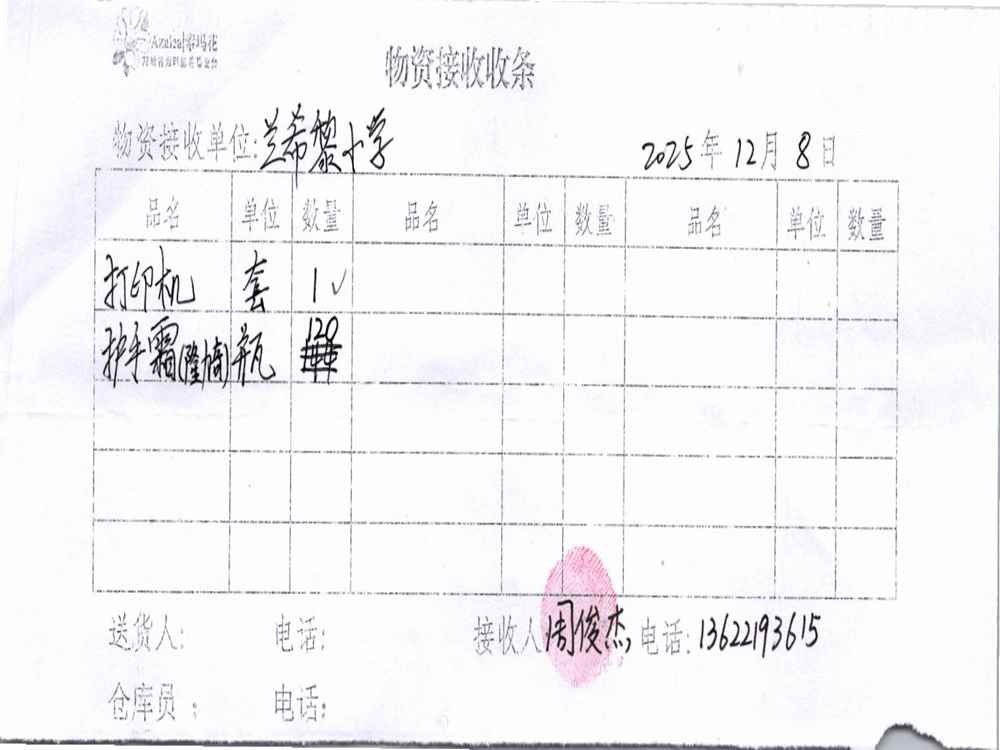 Azalea|索玛花
物资接收收条
物资接收单位:兰希黎小学 2025年12月8日
品名 单位 数量 品名 单位 数量 品名 单位 数量
打印机 套 1✓
护手霜(隆楠) 瓶 120
送货人: 电话: 接收人周俊杰, 电话:13622193615
仓库员: 电话: